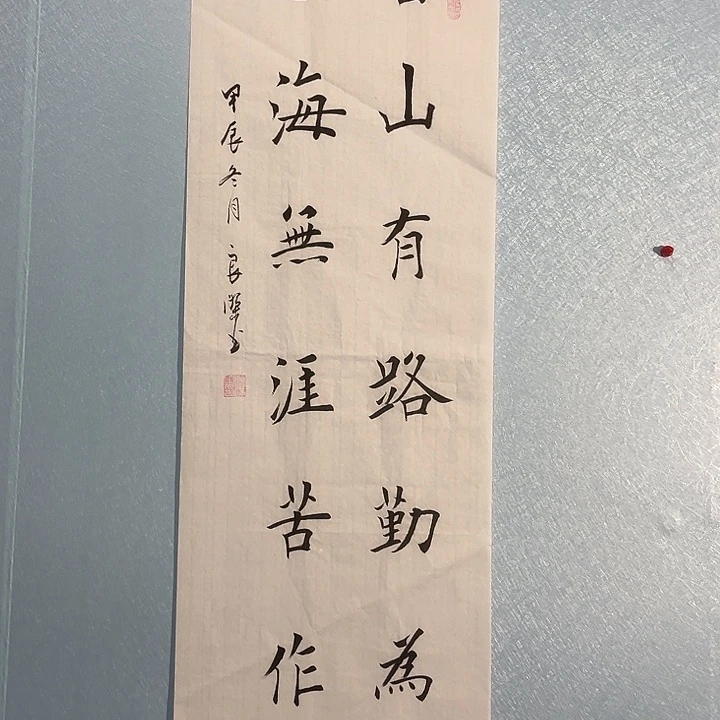 山有路勤為
海無涯苦作
甲辰冬月